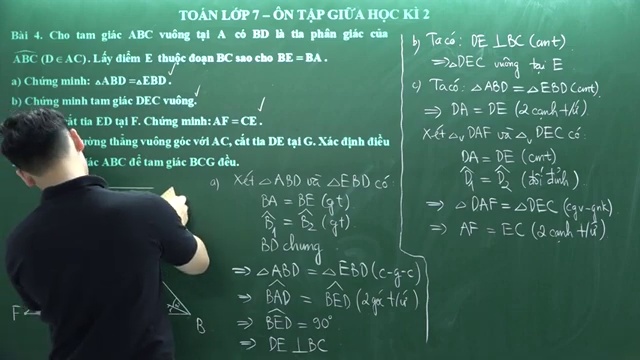 TOÁN LỚP 7 – ÔN TẬP GIỮA HỌC KÌ 2
Bài 4. Cho tam giác ABC vuông tại A có BD là tia phân giác của
ABC (D ∈ AC). Lấy điểm E thuộc đoạn BC sao cho BE = BA.
a) Chứng minh: △ABD = △EBD.
b) Chứng minh tam giác DEC vuông.
cắt tia ED tại F. Chứng minh: AF = CE.
thẳng vuông góc với AC, cắt tia DE tại G. Xác định điều
ABC để tam giác BCG đều.
F
B
a) Xét △ABD và △EBD có:
BA = BE (gt)
B̂1 = B̂2 (gt)
BD chung
⇒ △ABD = △EBD (c-g-c)
⇒ BAD = BED (2 góc t/ứ)
⇒ BED = 90°
⇒ DE ⊥ BC
b) Ta có: DE ⊥ BC (cmt)
⇒ △DEC vuông tại E
c) Ta có: △ABD = △EBD (cmt)
⇒ DA = DE (2 cạnh t/ứ)
Xét △v DAF và △v DEC có:
DA = DE (cmt)
D̂1 = D̂2 (đối đỉnh)
⇒ △DAF = △DEC (cgv-gnk)
⇒ AF = EC (2 cạnh t/ứ)